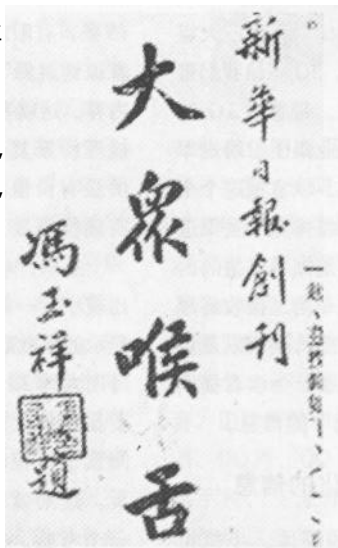 新華日報創刊
大衆喉舌
馮玉祥題